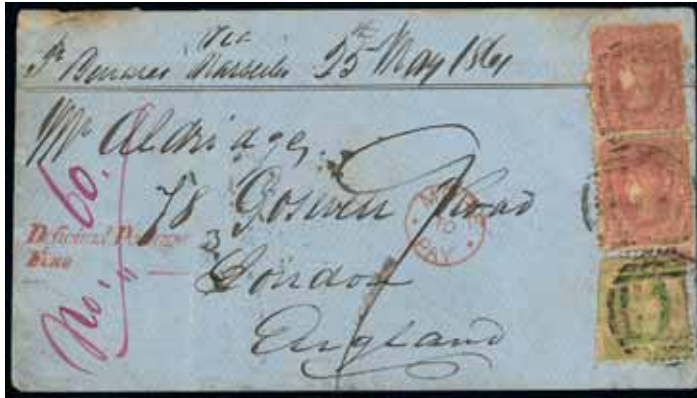 Pr Benares via Marseilles 25th May 1861
Mr Aldridge,
78 Goswell Road
London
England
No. 60.
Deficient Postage
Fine
MORE TO PAY
3